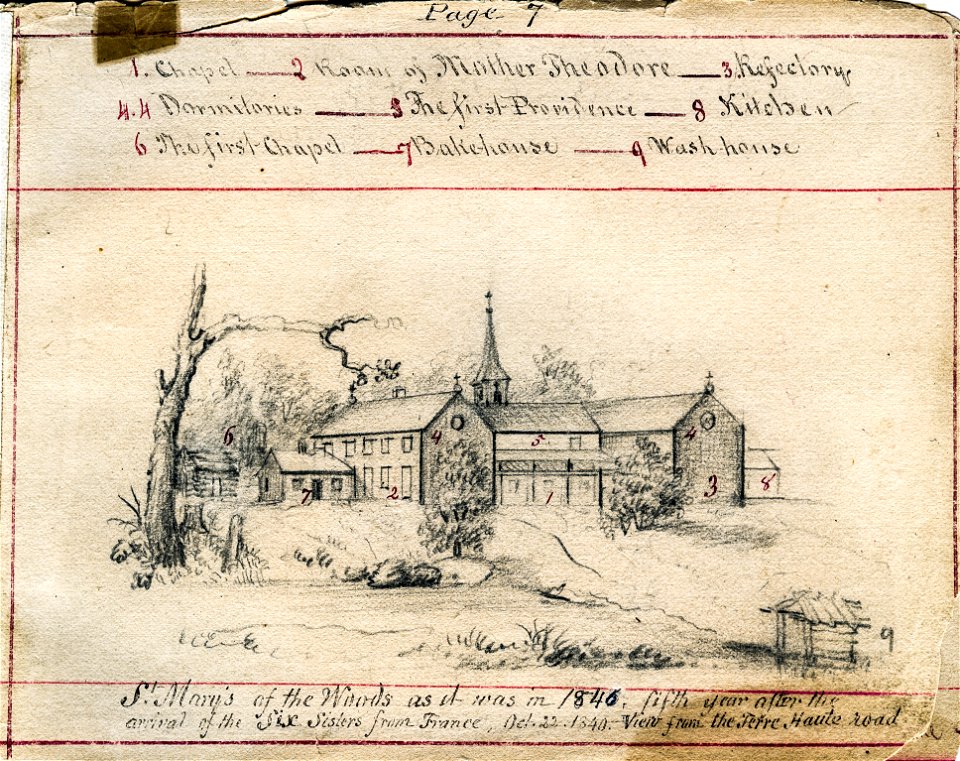 Page 7
1. Chapel — 2 Room of Mother Theodore — 3. Refectory
4.4 Dormitories — 5 The first Providence — 8 Kitchen
6 The first Chapel — 7 Bake-house — 9 Wash-house
6
4
5
4
7
2
1
3
8
9
St Mary's of the Woods as it was in 1846, fifth year after the
arrival of the Six Sisters from France, Oct. 22. 1840. View from the Terre Haute road